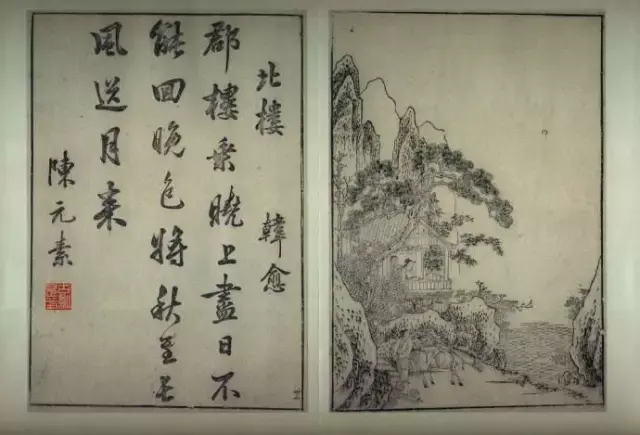 北樓 韓愈
郡樓乘曉上盡日不
能回晚色將秋至長
風送月來
陳元素